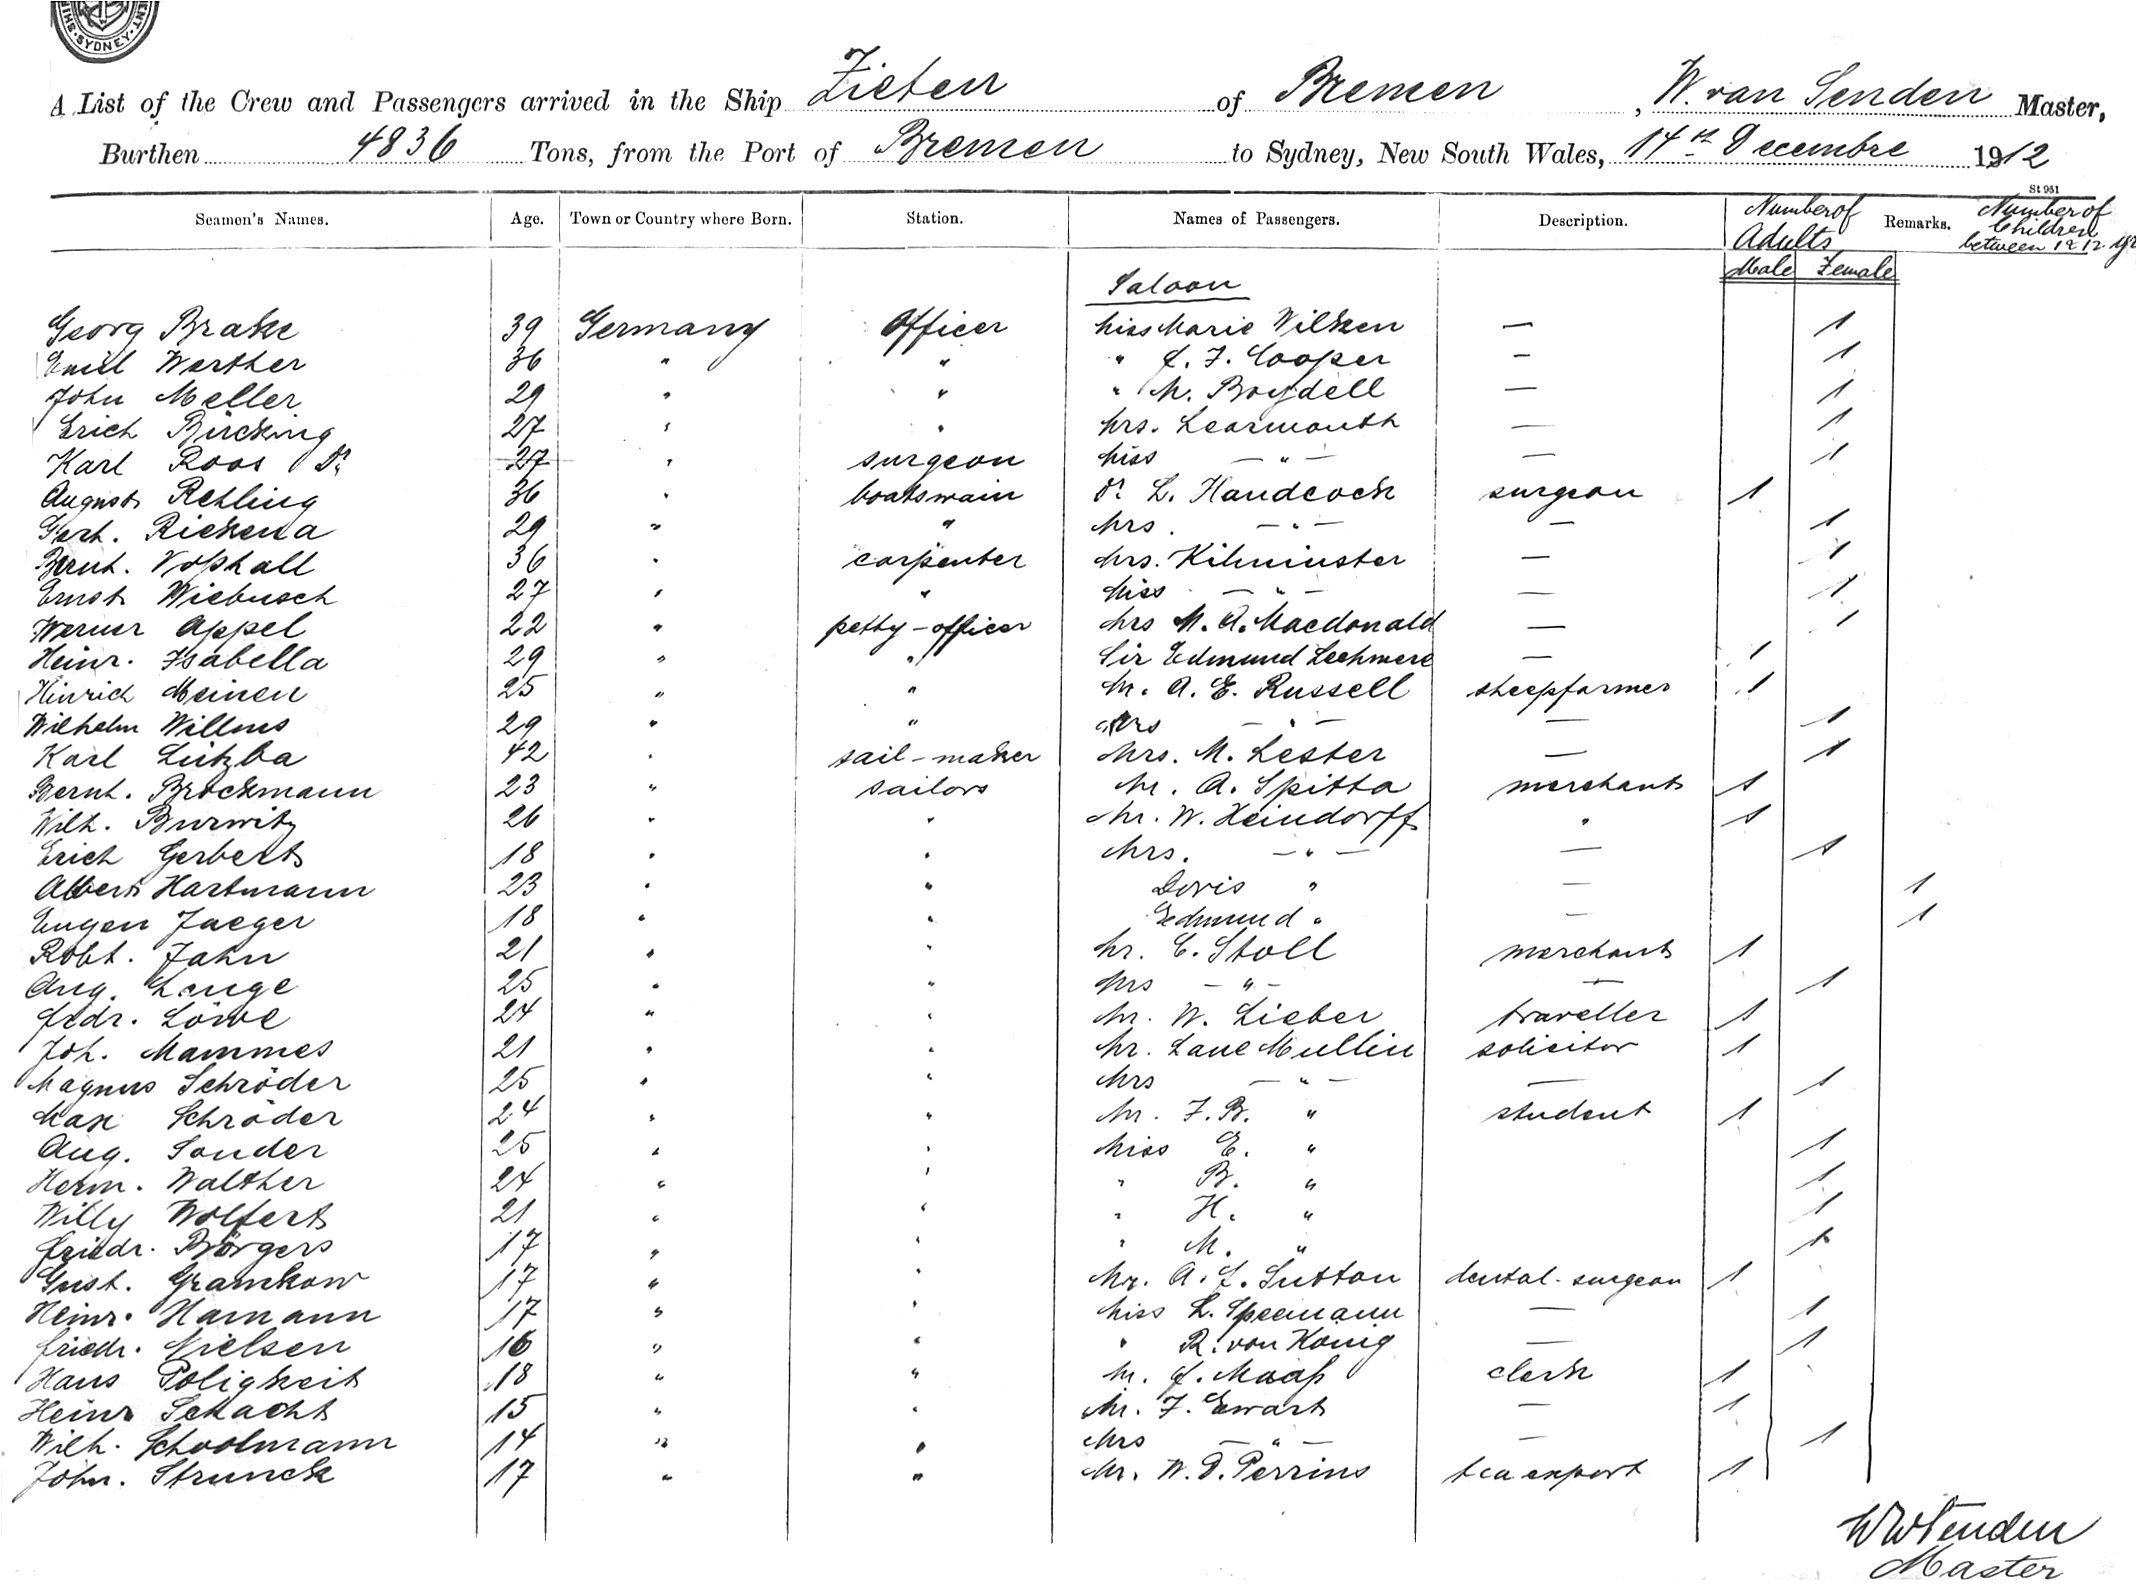 SYDNEY
A List of the Crew and Passengers arrived in the Ship Zieten of Bremen, W. van Senden Master,
Burthen 4836 Tons, from the Port of Bremen to Sydney, New South Wales, 14th Decembre 1912
St 951
Seamen's Names. Age. Town or Country where Born. Station. Names of Passengers. Description. Number of Adults Remarks. Number of Children between 1 & 12 yrs
Male Female
Saloon
Georg Brake 39 Germany Officer Miss Marie Wilken — 1
Emil Werther 36 " " " E. F. Cooper — 1
John Meller 29 " " " M. Boydell — 1
Erich Bücking 27 " " Mrs. Learmonth — 1
Karl Roos Dr 27 " surgeon Miss — " — — 1
August Rehling 36 " boatswain Dr L. Handcock surgeon 1
Gerh. Rickena 29 " " Mrs. — " — — 1
Bernt. Voshall 36 " carpenter Mrs. Kilminster — 1
Ernst Wiebusch 27 " " Miss — " — — 1
Werner Appel 22 " petty-officer Mrs M. A. Macdonald — 1
Heinr. Isabella 29 " " Sir Edmund Lechmere — 1
Hinrich Meinen 25 " " Mr. A. E. Russell sheepfarmer 1
Wilhelm Willms 29 " " Mrs — " — — 1
Karl Lützba 42 " sail-maker Mrs. M. Lester — 1
Bernt. Brockmann 23 " sailors Mr. A. Spitta merchant 1
Wilh. Burwitz 26 " " Mr. W. Heindorff " 1
Erich Gerbert 18 " " Mrs. — " — — 1
Albert Hartmann 23 " " Doris " — 1
Eugen Jaeger 18 " " Edmund " — 1
Robt. Jahn 21 " " Mr. C. Stoll merchant 1
Aug. Lange 25 " " Mrs — " — — 1
Fedr. Löwe 24 " " Mr. W. Lieber traveller 1
Joh. Mammes 21 " " Mr. Lane Mullin solicitor 1
Magnus Schröder 25 " " Mrs — " — — 1
Max Schröder 24 " " Mr. F. B. " student 1
Aug. Sonder 25 " " Miss E. " 1
Herm. Walther 24 " " " B. " 1
Willy Wolfert 21 " " " H. " 1
Friedr. Börgers 17 " " " M. " 1
Gust. Gramkow 17 " " Mr. A. E. Sutton dental-surgeon 1
Heinr. Hamann 17 " " Miss L. Speemann — 1
Friedr. Nielsen 16 " " " R. von König — 1
Hans Poligkeit 18 " " Mr. J. Maaß clerk 1
Heinr Schacht 15 " " Mr. F. Ewart — 1
Wilh. Schoolmann 14 " " Mrs — " — — 1
John. Strunck 17 " " Mr. W. D. Perrins tea export 1
WvSenden
Master